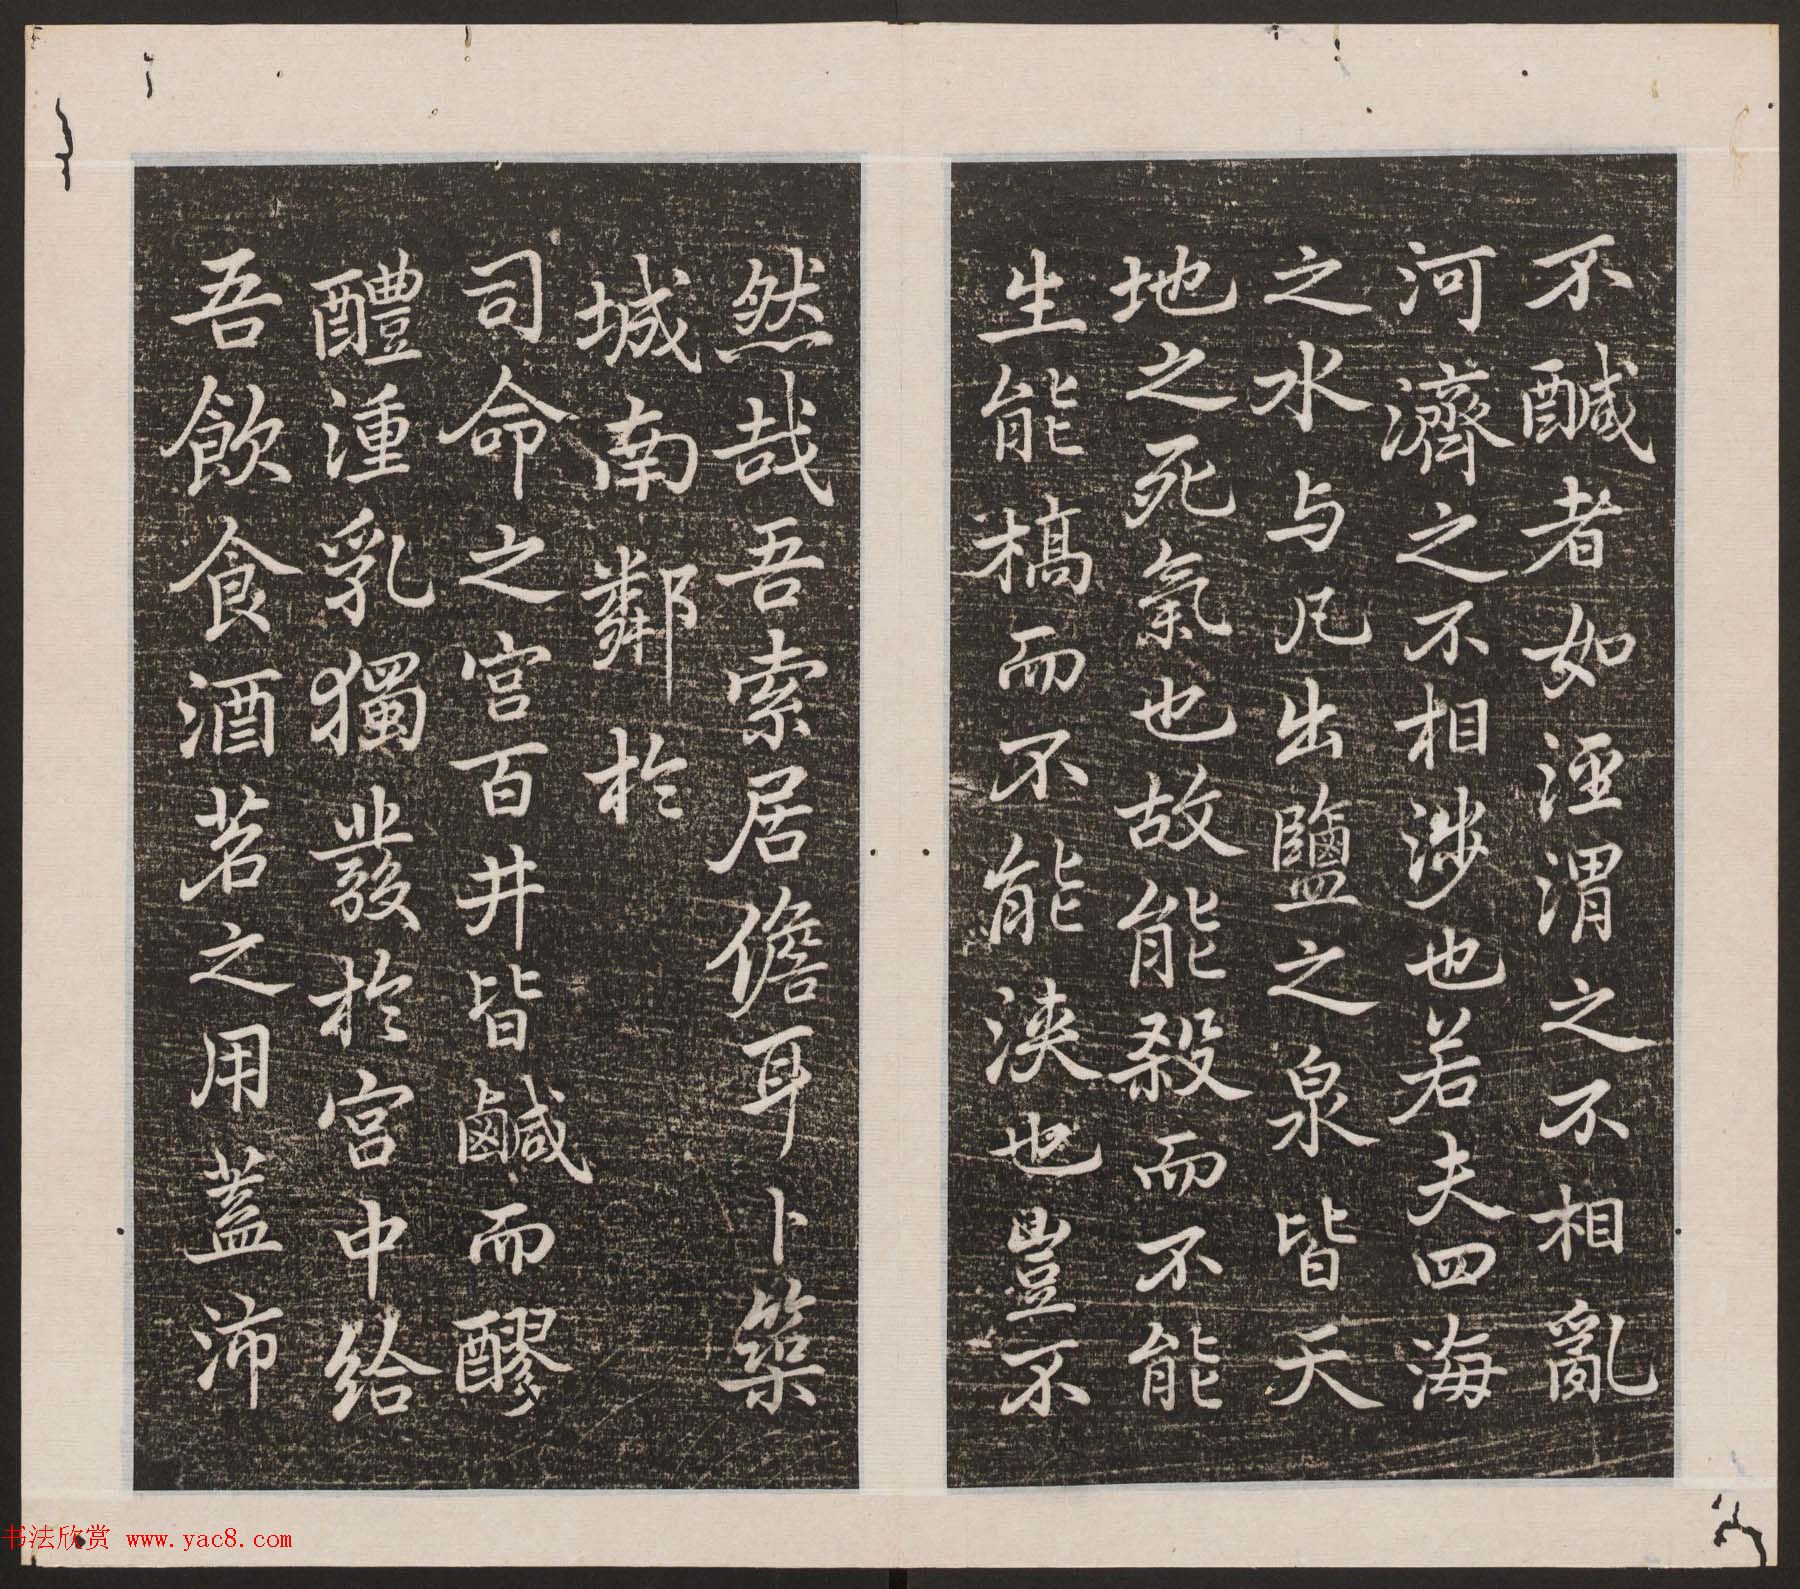 不鹹者如涇渭之不相亂
河濟之不相涉也若夫四海
之水与凡出鹽之泉皆天
地之死氣也故能殺而不能
生能槁而不能浹也豈不
然哉吾索居儋耳卜築
城南鄰於
司命之宮百井皆鹹而醪
醴湩乳獨發於宮中給
吾飲食酒茗之用蓋沛
书法欣赏 www.yac8.com